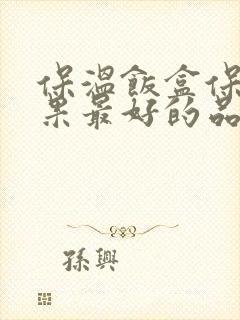 保溫飯盒保
果最好的品
孫興